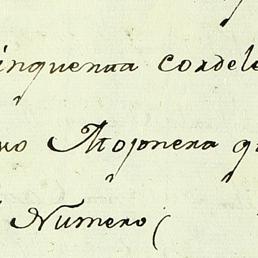 inquenta cordele
vo Mojonera q
Numero